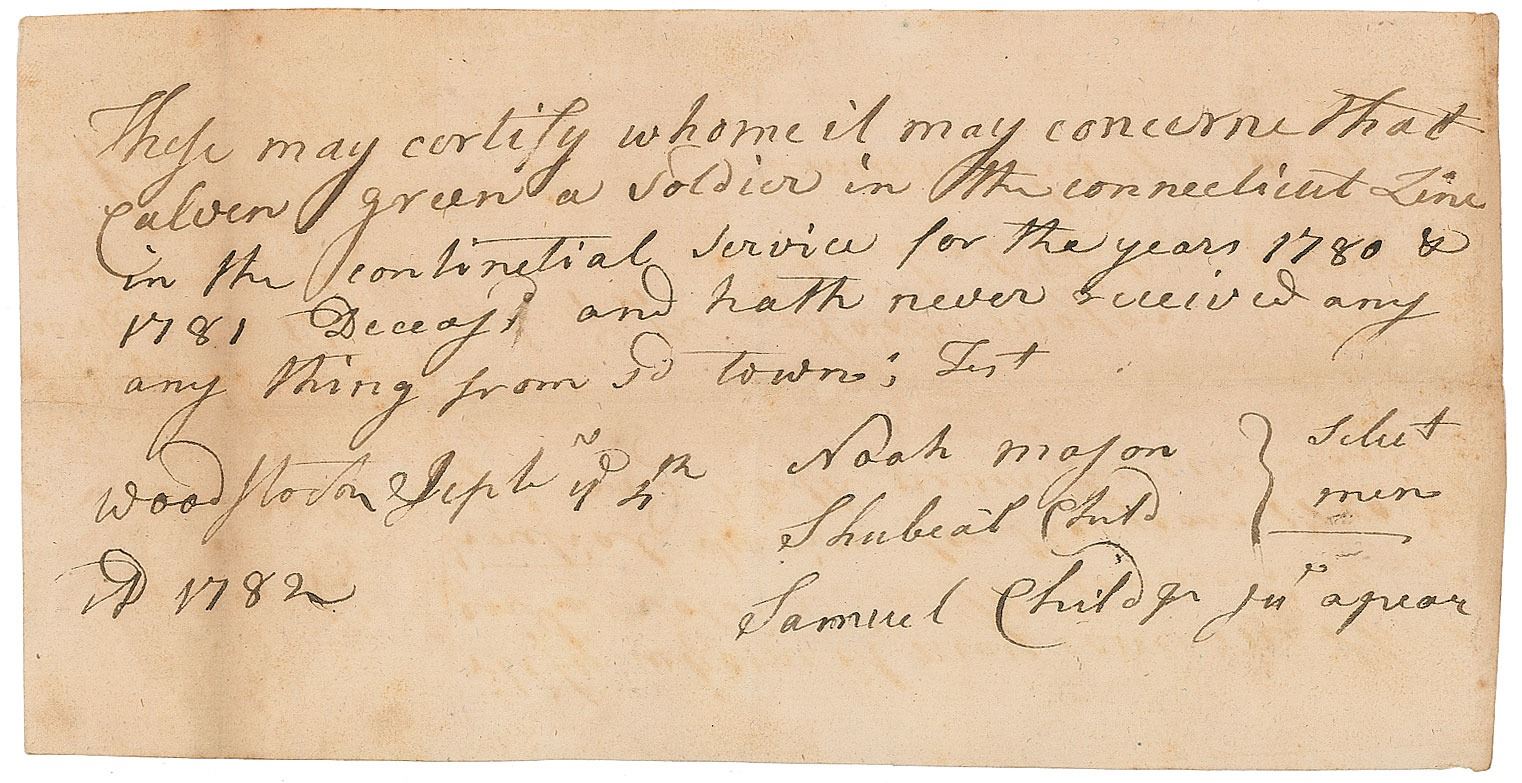 These may certify whome it may concerne that
Calven green a Soldier in the connecticut Line
in the continetial service for the years 1780 &
1781 Deceasd and hath never received any
any thing from sd town; Test
Woodstock Septr ye 4th
AD 1782
Noah mason
Shubeal Child
Select
men
Samuel Child Jur